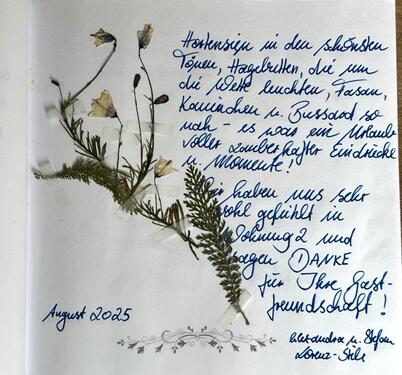 Hortensien in den schönsten
Tönen, Hagebutten, die um
die Wette leuchten, Fasan,
Kaninchen u. Bussard so
nah – es war ein Urlaub
voller zauberhafter Eindrücke
u. Momente!
Wir haben uns sehr
wohl gefühlt in
Wohnung 2 und
sagen DANKE
für Ihre Gast-
freundschaft!
August 2025
Alexandra u. Stefan